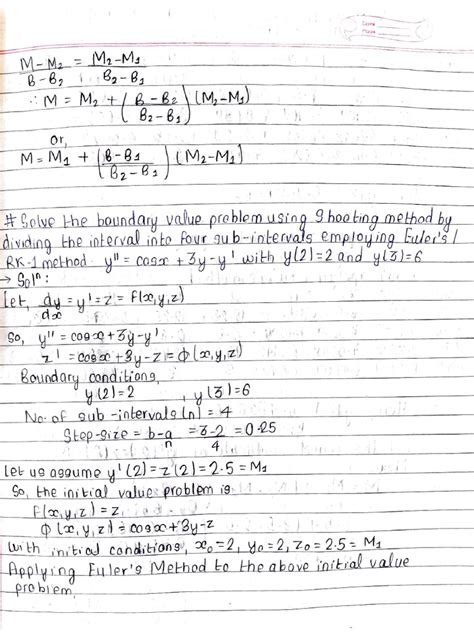 M-M₂ = M₂-M₁
B-B₂ B₂-B₁
∴ M = M₂ + (B-B₂ / B₂-B₁) (M₂-M₁)
or,
M = M₁ + (B-B₁ / B₂-B₁) (M₂-M₁)
# Solve the boundary value problem using Shooting method by
dividing the interval into four sub-intervals employing Euler's /
RK-1 method y'' = cosx + 3y-y' with y(2)=2 and y(3)=6
→ Solⁿ:
Let, dy/dx = y' = z = f(x,y,z)
So, y'' = cosx+3y-y'
z' = cosx+3y-z = φ(x,y,z)
Boundary conditions,
y(2)=2 , y(3)=6
No. of sub-intervals (n) = 4
Step-size = b-a/n = 3-2/4 = 0.25
Let us assume y'(2)=z(2)=2.5=M₁
So, the initial value problem is
f(x,y,z)=z,
φ(x,y,z)=cosx+3y-z
with initial conditions, x₀=2, y₀=2, z₀=2.5=M₁
Applying Euler's Method to the above initial value
problem,